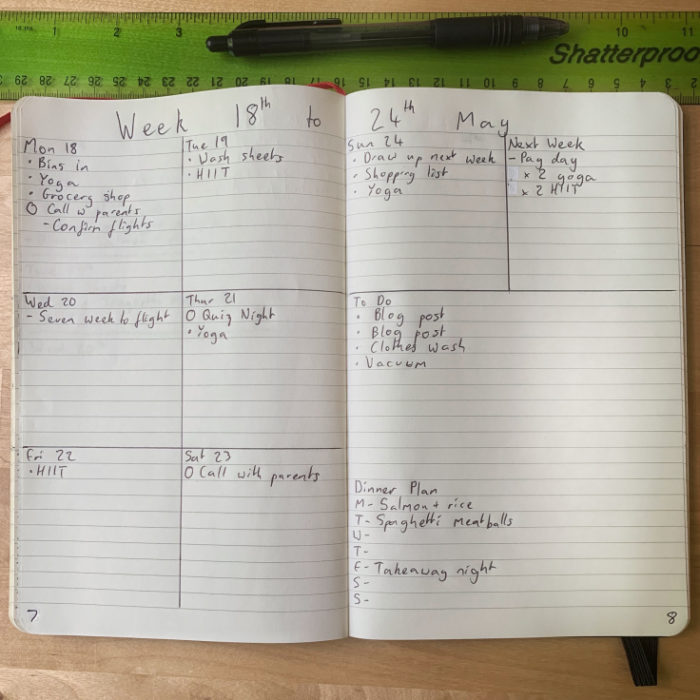 1 2 3 10 11
Shatterproo
29 28 27 26 25 24 23 22 21 20 19 18 17 16 15 14 13 12 11 10 9 8 7 6 5 4 3 2
Week 18th to 24th May
Mon 18
• Bins in
• Yoga
• Grocery shop
O Call w parents
- Confirm flights
Tue 19
• Wash sheets
• HIIT
Wed 20
- Seven week to flight
Thur 21
O Quiz Night
• Yoga
Fri 22
• HIIT
Sat 23
O Call with parents
7
Sun 24
• Draw up next week
• Shopping list
• Yoga
Next Week
- Pay day
x 2 yoga
x 2 HIIT
To Do
• Blog post
• Blog post
• Clothes wash
• Vacuum
Dinner Plan
M- Salmon + rice
T- Spaghetti meatballs
W-
T-
F- Takeaway night
S-
S-
8